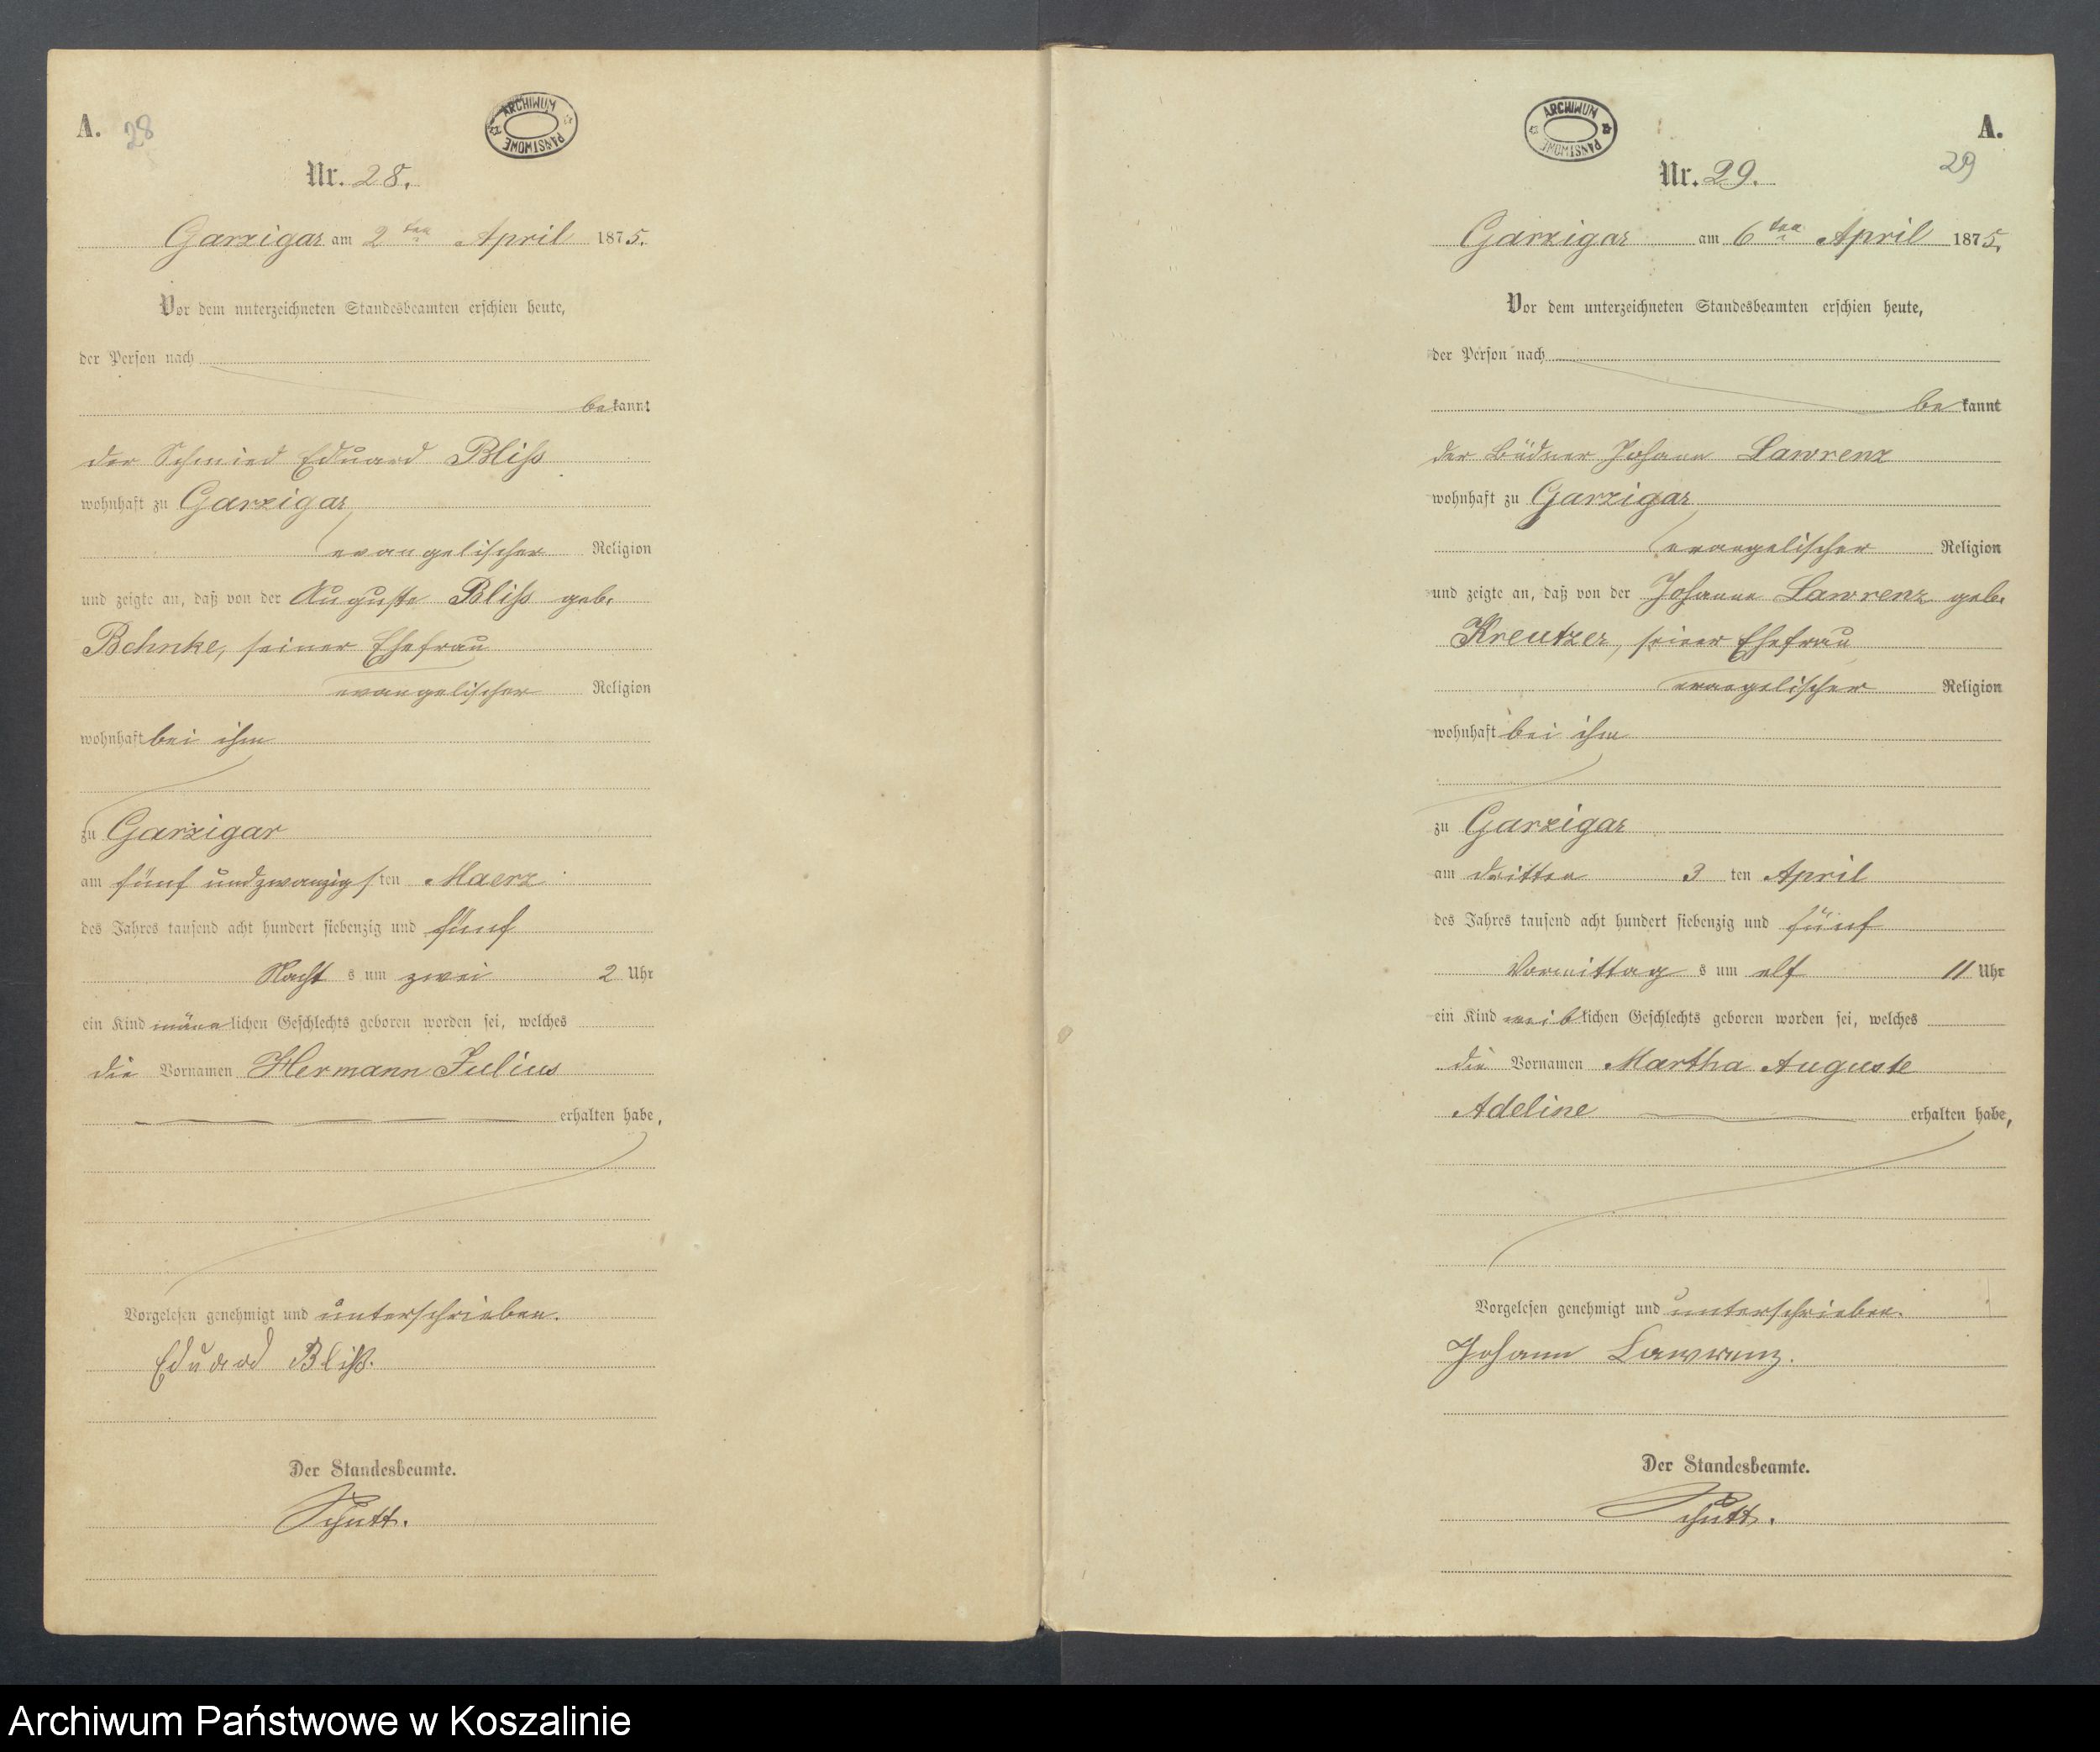 A.
28
ARCHIWUM PAŃSTWOWE
Nr. 28.
Garzigar am 2ten April 1875.
Vor dem unterzeichneten Standesbeamten erschien heute,
der Person nach
bekannt
der Schmied Eduard Bliß
wohnhaft zu Garzigar
evangelischer Religion
und zeigte an, daß von der Auguste Bliß geb.
Behnke, seiner Ehefrau
evangelischer Religion
wohnhaft bei ihm
zu Garzigar
am fünf und zwanzigsten Maerz
des Jahres tausend acht hundert siebenzig und fünf
Nacht s um zwei 2 Uhr
ein Kind männlichen Geschlechts geboren worden sei, welches
die Vornamen Hermann Julius
erhalten habe,
Vorgelesen genehmigt und unterschrieben.
Eduard Bliß.
Der Standesbeamte.
Schütt.
ARCHIWUM PAŃSTWOWE
A.
29
Nr. 29.
Garzigar am 6ten April 1875.
Vor dem unterzeichneten Standesbeamten erschien heute,
der Person nach
bekannt
der Büdner Johann Lawrenz
wohnhaft zu Garzigar
evangelischer Religion
und zeigte an, daß von der Johanne Lawrenz geb.
Kreutzer, seiner Ehefrau
evangelischer Religion
wohnhaft bei ihm
zu Garzigar
am dritten 3 ten April
des Jahres tausend acht hundert siebenzig und fünf
Vormittag s um elf 11 Uhr
ein Kind weiblichen Geschlechts geboren worden sei, welches
die Vornamen Martha Auguste
Adeline erhalten habe,
Vorgelesen genehmigt und unterschrieben.
Johann Lawrenz.
Der Standesbeamte.
Schütt.
Archiwum Państwowe w Koszalinie